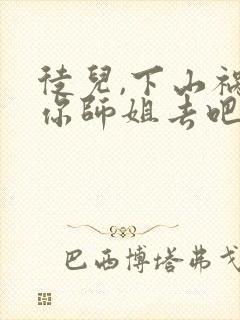 徒兒,下山禍
你師姐去吧
巴西博塔弗戈